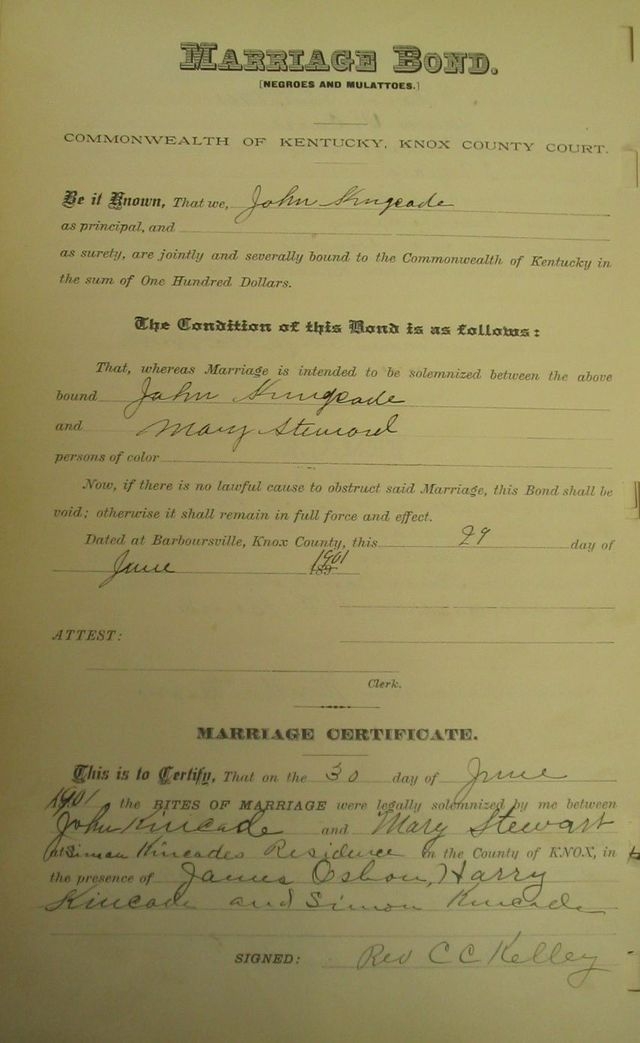 MARRIAGE BOND.
[NEGROES AND MULATTOES.]
COMMONWEALTH OF KENTUCKY, KNOX COUNTY COURT.
Be it Known, That we, John Kingcade
as principal, and
as surety, are jointly and severally bound to the Commonwealth of Kentucky in
the sum of One Hundred Dollars.
The Condition of this Bond is as follows:
That, whereas Marriage is intended to be solemnized between the above
bound John Kingcade
and Mary Steward
persons of color
Now, if there is no lawful cause to obstruct said Marriage, this Bond shall be
void; otherwise it shall remain in full force and effect.
Dated at Barboursville, Knox County, this 29 day of
June 1901 189
ATTEST:
Clerk.
MARRIAGE CERTIFICATE.
This is to Certify, That on the 30 day of June
1901 the RITES OF MARRIAGE were legally solemnized by me between
John Kincade and Mary Stewart
at Simon Kincades Residence in the County of KNOX, in
the presence of James Osbon, Harry
Kincade and Simon Kincade
SIGNED: Rev C C Kelley